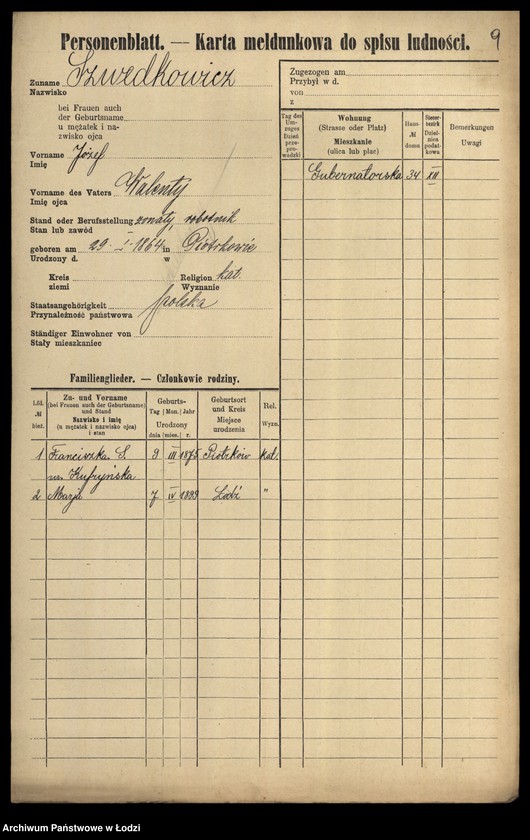 Personenblatt. — Karta meldunkowa do spisu ludności.
9
Zuname Szwedkowicz
Nazwisko
bei Frauen auch
der Geburtsname
u mężatek i na-
zwisko ojca
Vorname Józef
Imię
Vorname des Vaters Walenty
Imię ojca
Stand oder Berufsstellung żonaty, robotnik
Stan lub zawód
geboren am 29. I. 1864 in Piotrkowie
Urodzony d. w
Kreis Religion kat.
ziemi Wyznanie
Staatsangehörigkeit polska
Przynależność państwowa
Ständiger Einwohner von
Stały mieszkaniec
Zugezogen am
Przybył w d.
von
z
Tag des Um-zuges Dzień prze-prowadzki
Wohnung (Strasse oder Platz) Mieszkanie (ulica lub plac)
Haus № domu
Steuer-bezirk Dziel-nica podat-kowa
Bemerkungen Uwagi
Gubernatorska 34 XII
Familienglieder. — Członkowie rodziny.
Lfd. № bież.
Zu- und Vorname (bei Frauen auch der Geburtsname) und Stand Nazwisko i imię (u mężatek i nazwisko ojca) i stan
Geburts- Tag Mon. Jahr Urodzony dnia mies. r.
Geburtsort und Kreis Miejsce urodzenia
Rel. Wyzn.
1 Franciszka S. 9 III 1875 Piotrków kat.
2 Marja 7 IX 1899 Łódź "
Archiwum Państwowe w Łodzi